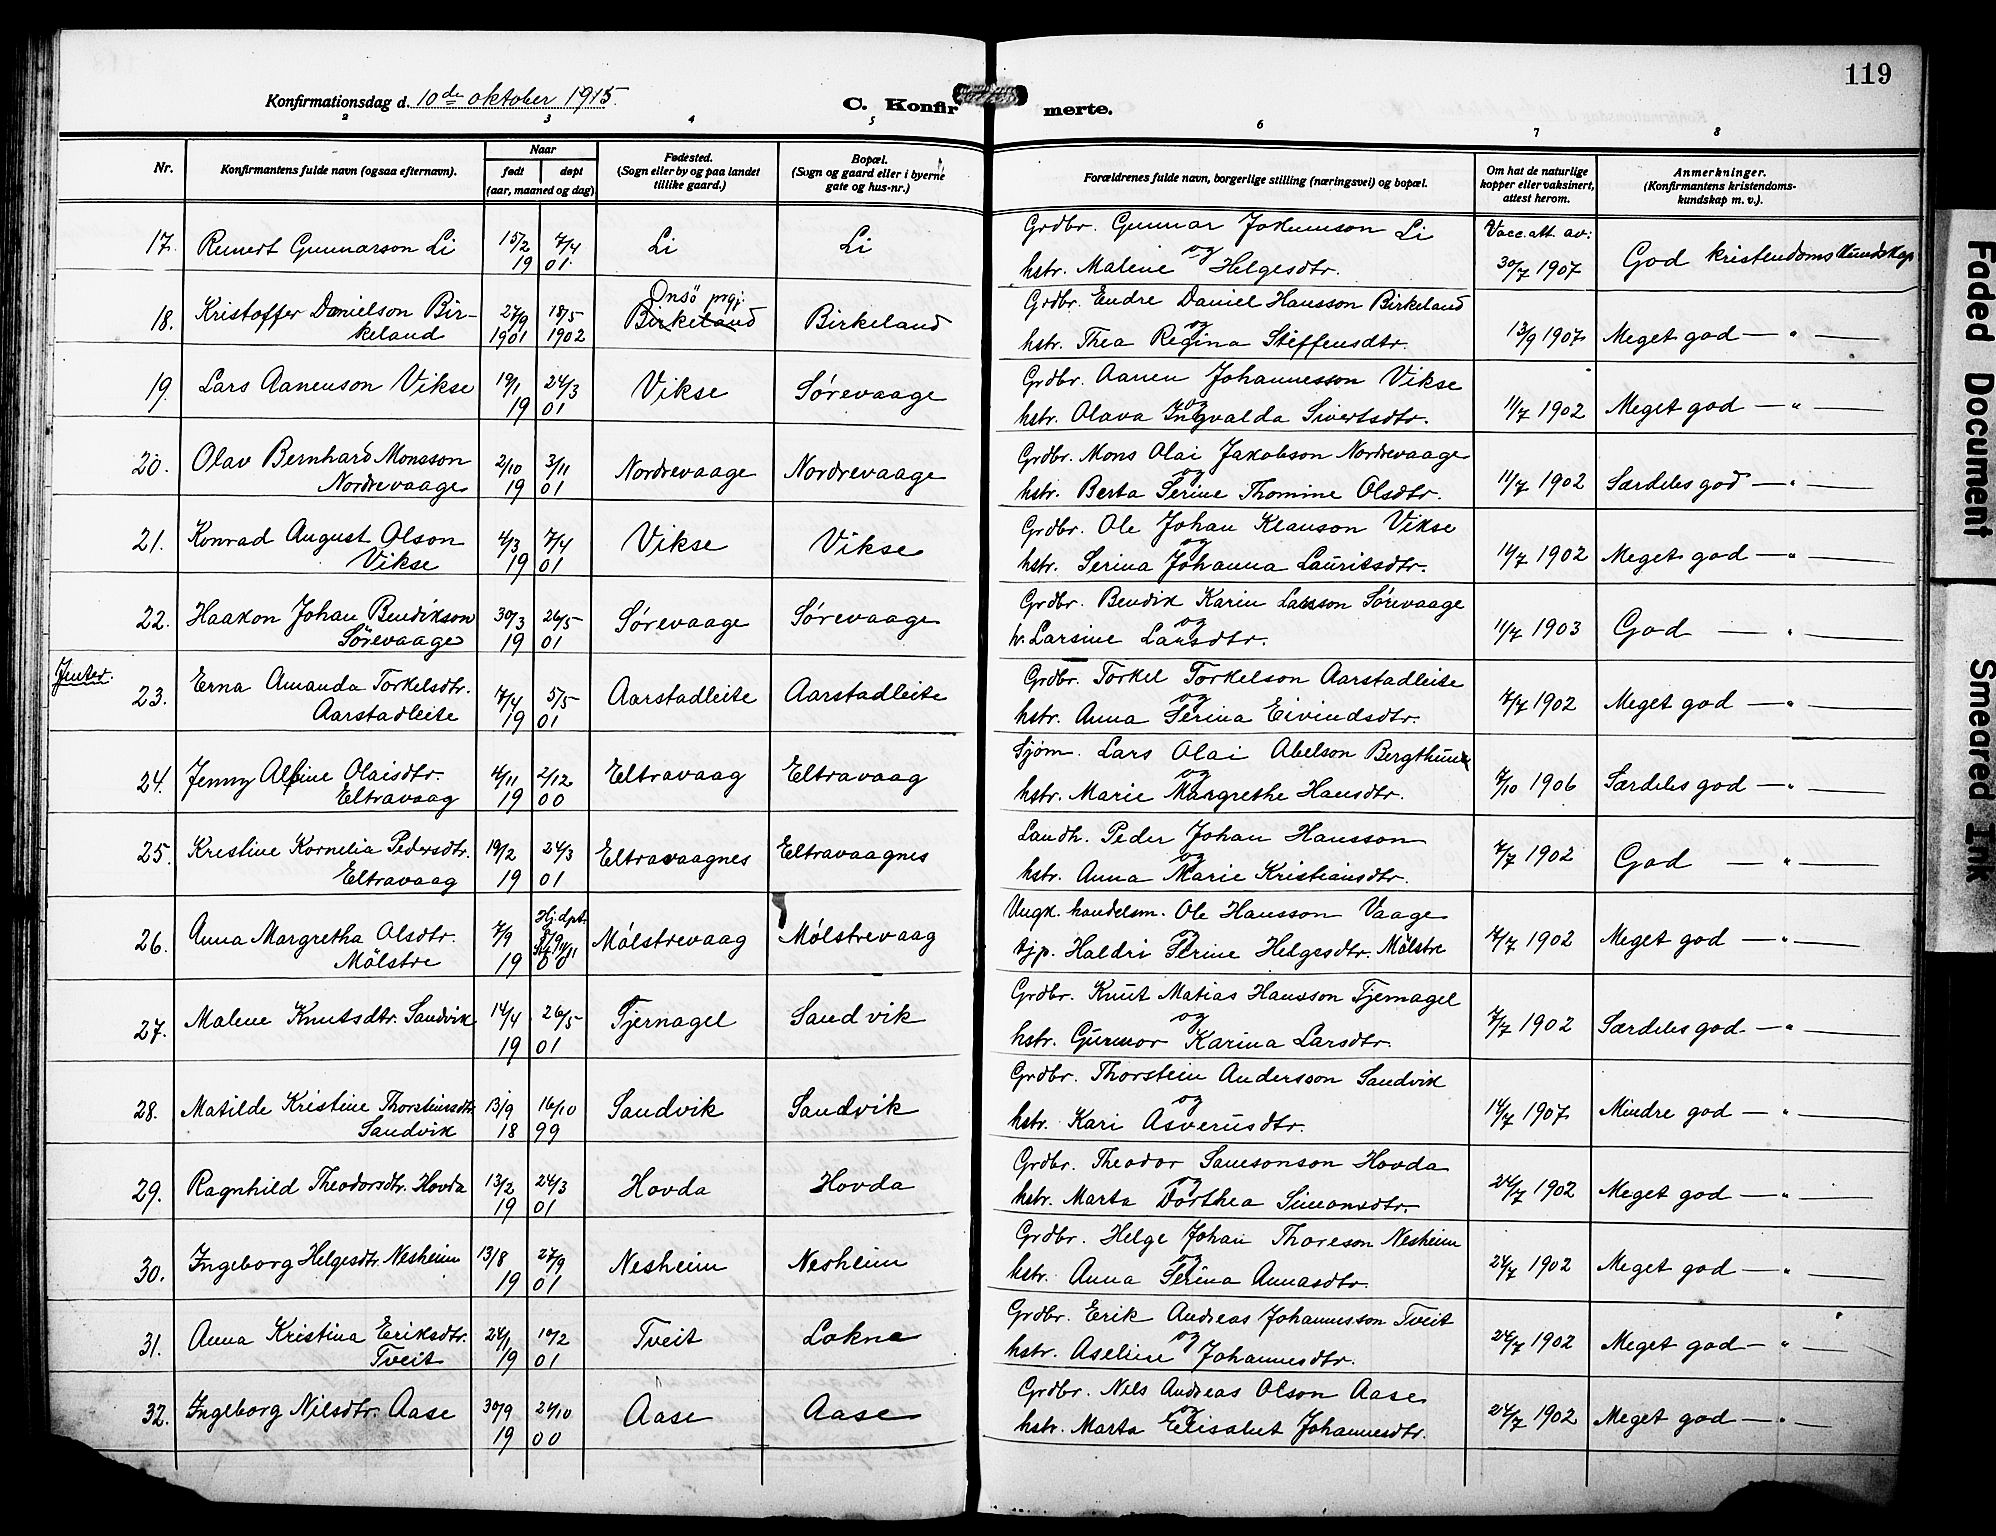 119
Konfirmationsdag d. 10de oktober 1915.
C. Konfirmerte.
2 3 4 5 6 7 8
Nr.
Konfirmantens fulde navn (ogsaa efternavn).
Naar
født døpt
(aar, maaned og dag)
Fødested.
(Sogn eller by og paa landet
tillike gaard.)
Bopæl.
(Sogn og gaard eller i byerne
gate og hus-nr.)
Forældrenes fulde navn, borgerlige stilling (næringsvei) og bopæl.
Om hat de naturlige
kopper eller vaksinert,
attest herom.
Anmerkninger.
(Konfirmantens kristendoms-
kundskap m. v.).
17. Reinert Gunnarson Li 15/2 7/4 19 01. Li Li
Grdbr. Gunnar Jokumson Li
og
hstr. Malene Helgesdtr.
Vacc. att. av:
30/7 1907 God kristendomskundskap
18. Kristoffer Danielson Bir-
keland 27/9 1901 18/5 1902
Onsö prgj.
Birkeland Birkeland
Grdbr. Endre Daniel Hansson Birkeland
og
hstr. Thea Regina Steffensdtr. 13/9 1907 Meget god — " —
19. Lars Aanenson Vikse 19/1 24/3 19 01 Vikse Sørevaage
Grdbr. Aanen Johannesson Vikse
og
hstr. Olava Ingvalda Sivertsdtr. 11/7 1902 Meget god — " —
20. Olav Bernhard Monsson
Nordrevaage 2/10 3/11 19 01 Nordrevaage Nordrevaage
Grdbr. Mons Olai Jakobson Nordrevaage
og
hstr. Berta Serine Thomine Olsdtr. 11/7 1902 Særdeles god — " —
21. Konrad August Olson
Vikse 4/3 7/4 19 01 Vikse Vikse
Grdbr. Ole Johan Klauson Vikse
og
hstr. Serina Johanna Lauritsdtr. 11/7 1902 Meget god — " —
22. Haakon Johan Bendikson
Sørevaage 30/3 26/5 19 01 Sørevaage Sørevaage
Grdbr. Bendik Karin Larsson Sørevaage
og
h. Larsine Larsdtr. 11/7 1903 God — " —
Jenter.
23. Erna Amanda Torkelsdtr.
Aarstadleite 17/4 5/5 19 01 Aarstadleite Aarstadleite
Grdbr. Torkel Torkelson Aarstadleite
og
hstr. Anna Serina Eivindsdtr. 7/7 1902 Meget god — " —
24. Jenny Alfine Olaisdtr.
Eltravaag 4/11 2/12 19 00 Eltravaag Eltravaag
Sjøm. Lars Olai Abelson Bergthun
og
hstr. Marie Margrethe Hansdtr. 7/10 1906 Særdeles god — " —
25. Kristine Kornelia Pedersdtr.
Eltravaag 19/2 24/3 19 01 Eltravaagnes Eltravaagnes
Landh. Peder Johan Hansson
og
hstr. Anna Marie Kristiansdtr. 7/7 1902 God — " —
26. Anna Margretha Olsdtr.
Mölstre 7/9 Hj.dpt. 8/9 19 00 Mölstrevaag Mölstrevaag
Ungk. handelsm. Ole Hansson Vaage
og
tjp. Haldri Serine Helgesdtr. Mölstre 7/7 1902 Meget god — " —
27. Malene Knutsdtr. Sandvik 14/4 26/5 19 01 Tjernagel Sandvik
Grdbr. Knut Matias Hansson Tjernagel
og
hstr. Gunnor Karina Larsdtr. 7/7 1902 Særdeles god — " —
28. Matilde Kristine Thorsteinsdtr.
Sandvik 13/9 16/10 18 99 Sandvik Sandvik
Grdbr. Thorstein Andersson Sandvik
og
hstr. Kari Asverusdtr. 14/7 1907 Mindre god — " —
29. Ragnhild Theodorsdtr. Hovda 13/2 24/3 19 01 Hovda Hovda
Grdbr. Theodor Samsonson Hovda
og
hstr. Marta Dorthea Simonsdtr. 24/7 1902 Meget god — " —
30. Ingeborg Helgesdtr. Nesheim 13/8 27/9 19 01 Nesheim Nesheim
Grdbr. Helge Johan Thoreson Nesheim
og
hstr. Anna Serina Annasdtr. 24/7 1902 Meget god — " —
31. Anna Kristina Eriksdtr.
Tveit 24/1 10/2 19 01 Tveit Lokna
Grdbr. Erik Andreas Johannesson Tveit
og
hstr. Aseline Johannesdtr. 24/7 1902 Meget god — " —
32. Ingeborg Nilsdtr. Aase 30/9 24/10 19 00 Aase Aase
Grdbr. Nils Andreas Olson Aase
og
hstr. Marta Elisabet Johannesdtr. 24/7 1902 Meget god — " —
Faded Document
Smeared Ink